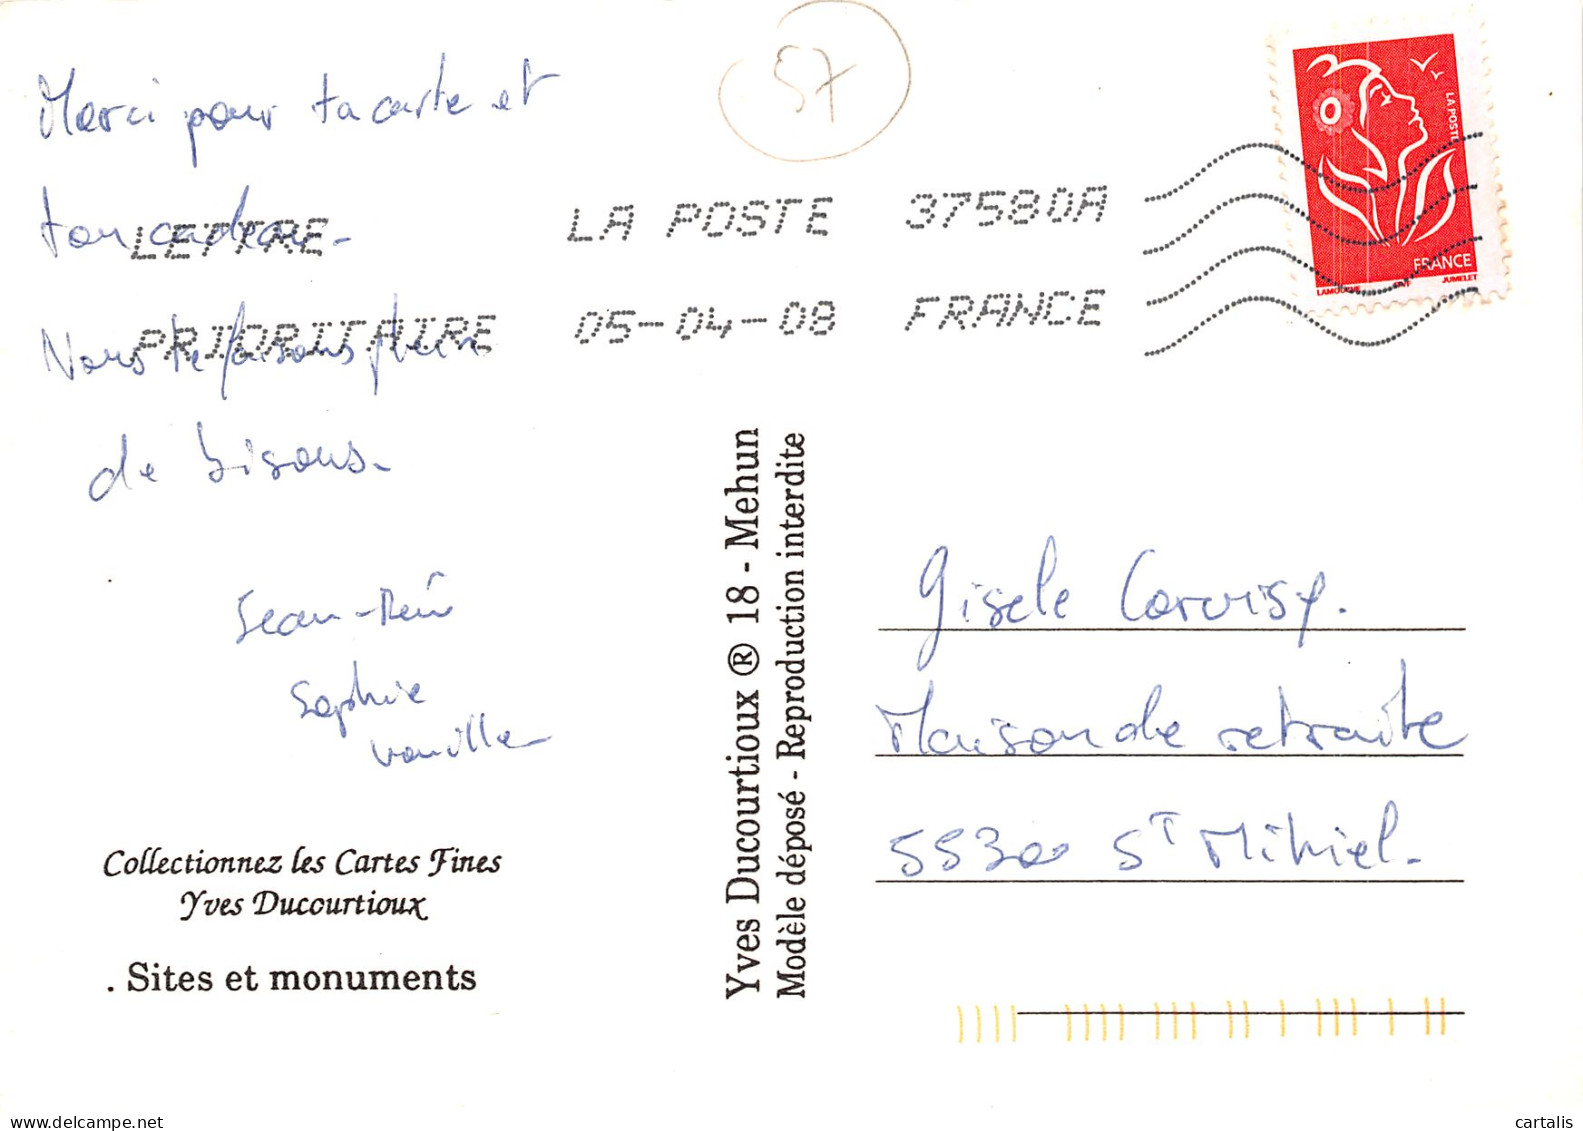 Merci pour ta carte et
ton cadeau.
Nous te faisons plein
de bisous.
Jean-Rémi
Sophie
Vanille
Collectionnez les Cartes Fines
Yves Ducourtioux
. Sites et monuments
57
LETTRE LA POSTE 37580A
PRIORITAIRE 05-04-08 FRANCE
LA POSTE
FRANCE
LAMOUCHE JUMELET
Yves Ducourtioux ® 18 - Mehun
Modèle déposé - Reproduction interdite
Gisele Corvisy.
Maison de retraite
55300 St Mihiel.
delcampe.net
cartalis